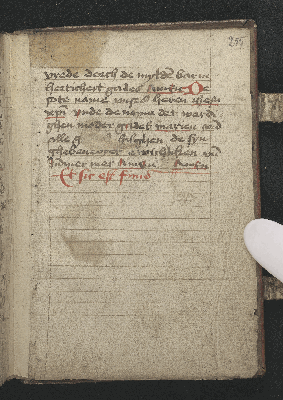 255
vrede dorch de mylden barm
herticheit godes Amen De
sote name unses heren ihesu
xpi vnde de name der werdi
ghen moder godes marien vnd
alle hilghen de syn
ghebenedyet
ummer mer Amen Amen
Et sic est finis